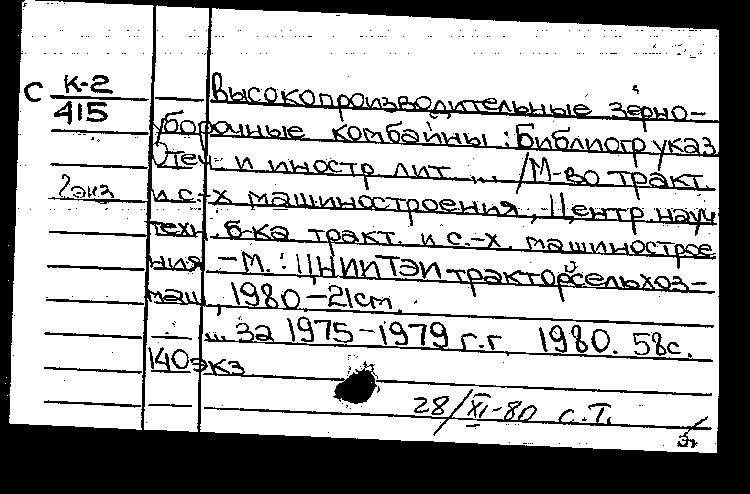 С К-2 Высокопроизводительные зерно-
415 уборочные комбайны : Библиогр указ
Отеч- и иностр лит ... / М-во тракт.
2экз и с.-х машиностроения, Центр. науч
техн. б-ка тракт. и с.-х. машинострое
ния - М. : ЦНИИТЭИтракторсельхоз-
маш, 1980 - 21 cm.
... за 1975-1979 г.г. 1980. 58с.
140экз
28/XI-80 с.Т.